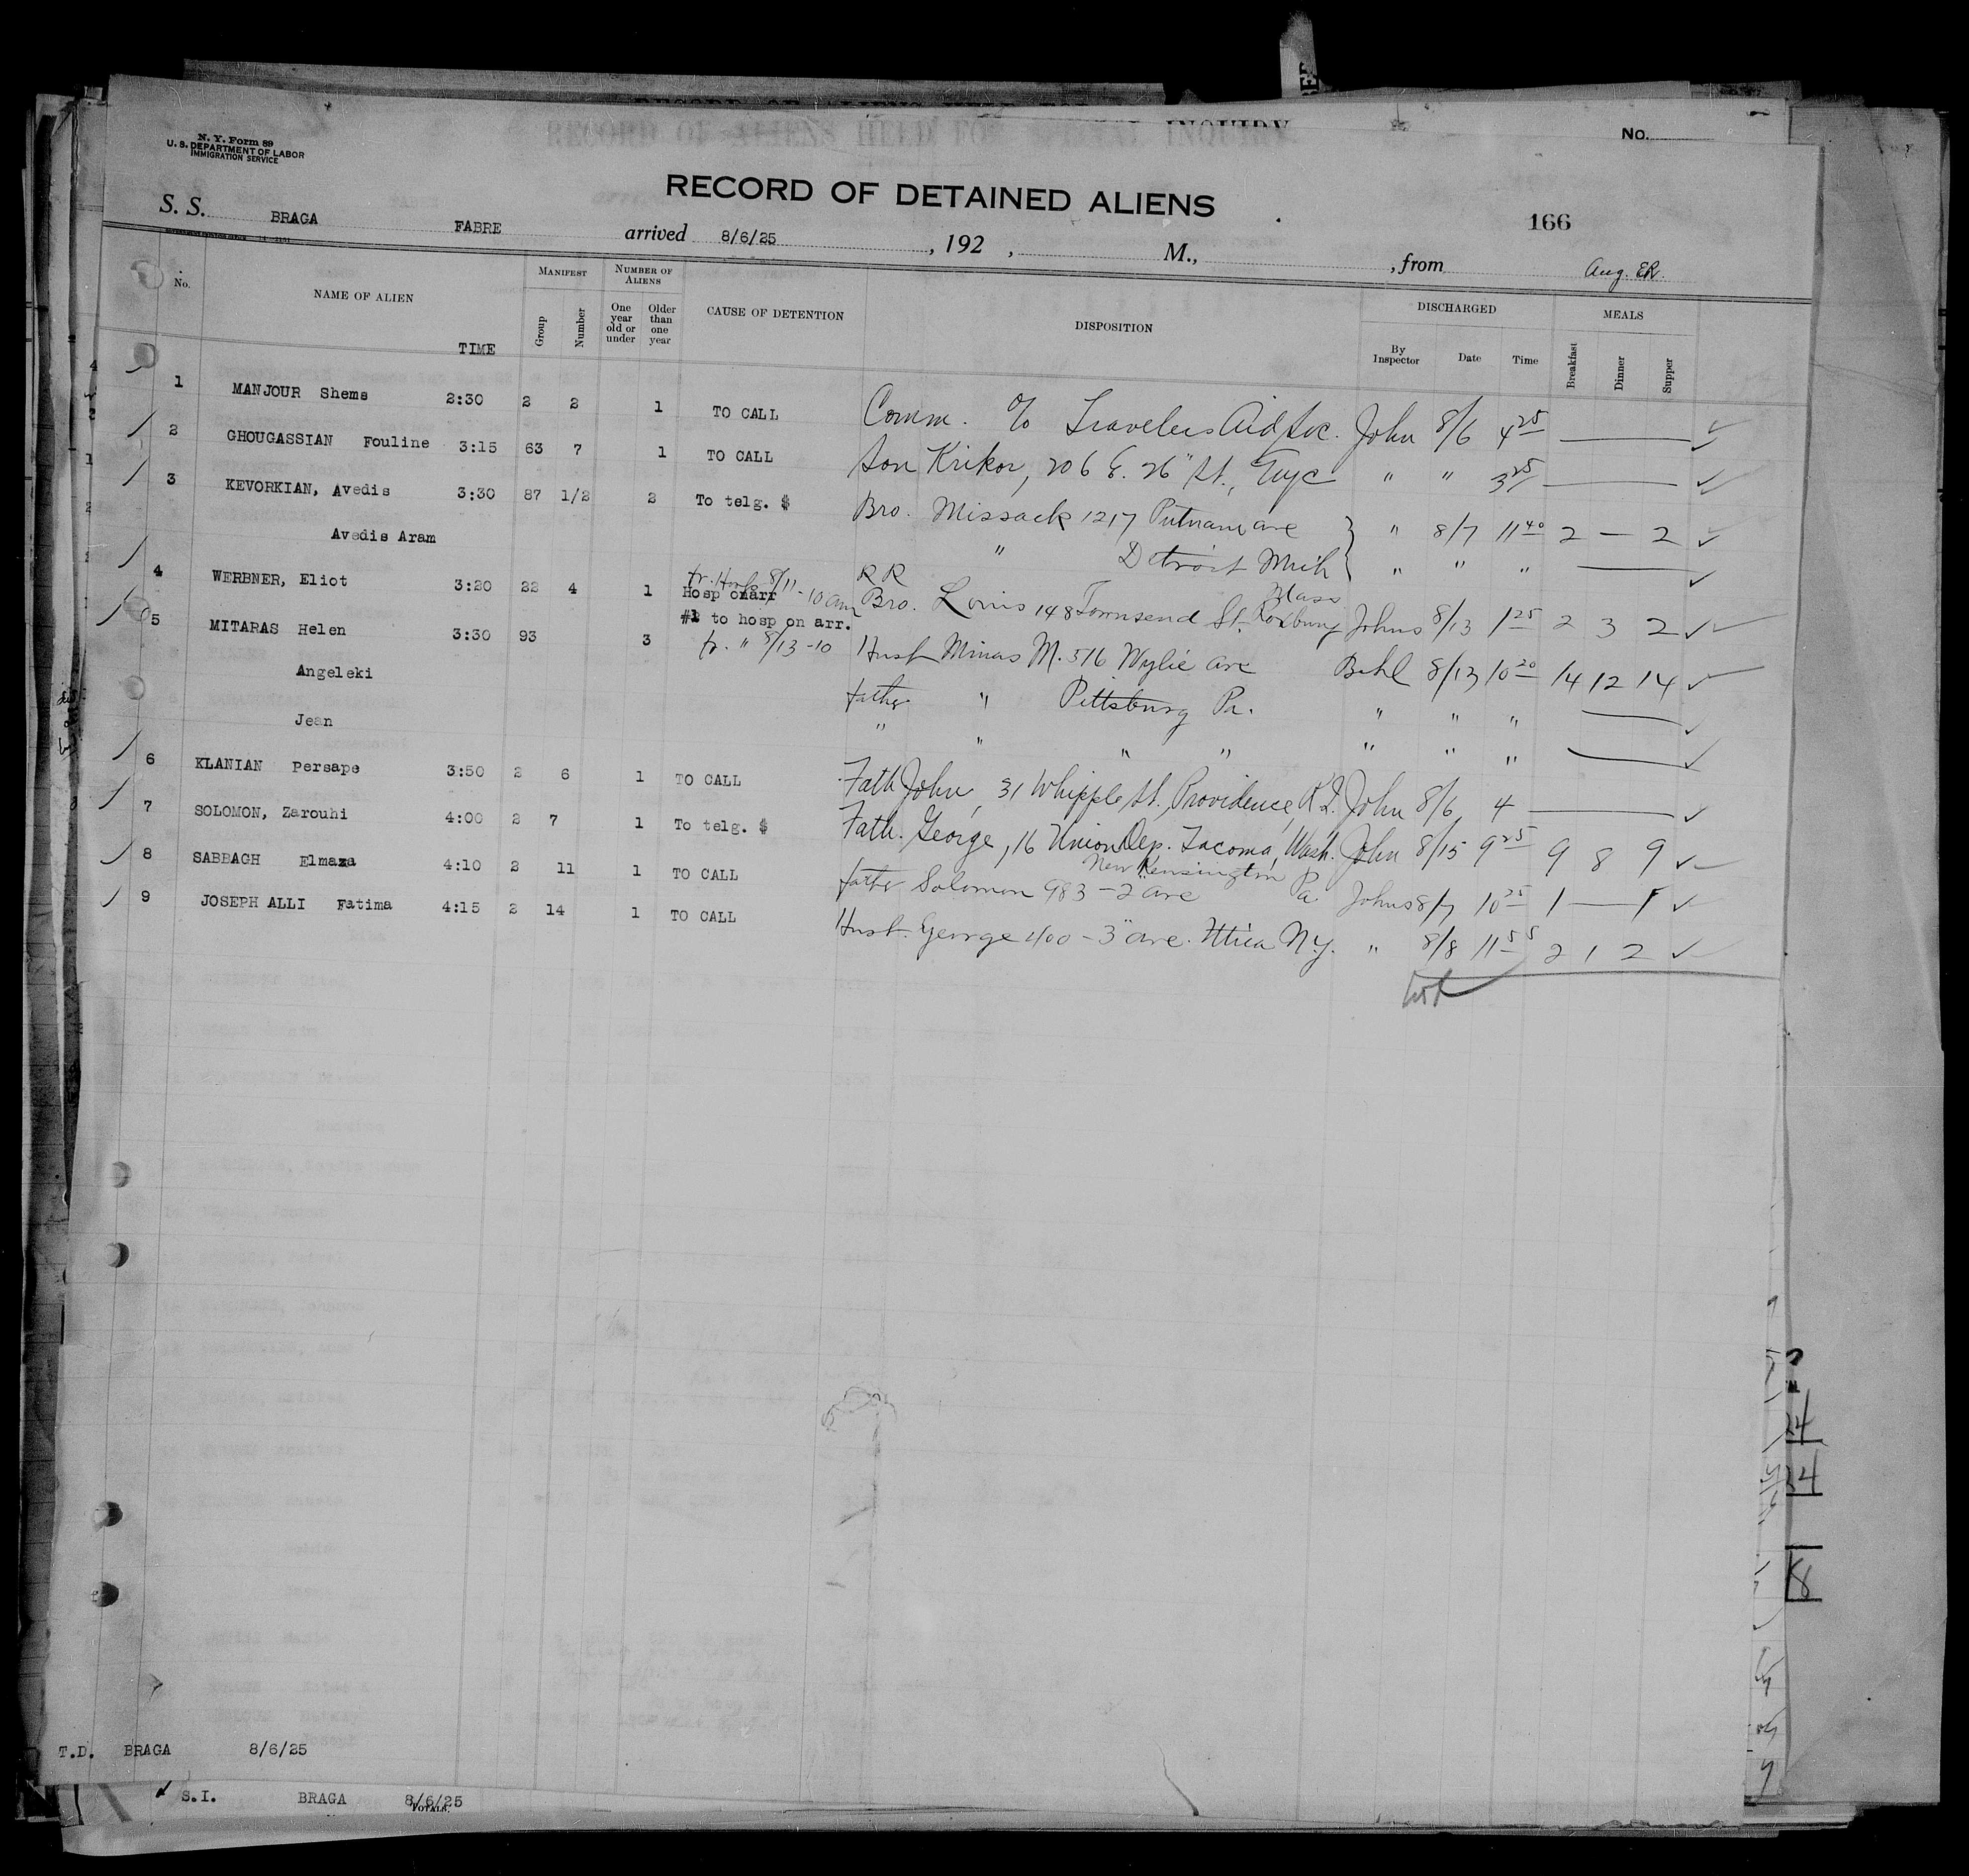 N. Y. Form 89
U. S. DEPARTMENT OF LABOR
IMMIGRATION SERVICE
RECORD OF ALIENS HELD FOR INQUIRY
No.
RECORD OF DETAINED ALIENS
166
S. S. BRAGA FABRE arrived 8/6/25 , 192 , M., , from Aug. ER.
No. NAME OF ALIEN TIME MANIFEST Group Number NUMBER OF ALIENS One year old or under Older than one year CAUSE OF DETENTION DISPOSITION DISCHARGED By Inspector Date Time MEALS Breakfast Dinner Supper
1 MANJOUR Shems 2:30 2 2 1 TO CALL Comm. c/o Travelers Aid Soc. John 8/6 4 25
2 GHOUGASSIAN Fouline 3:15 63 7 1 TO CALL Son Krikor, 206 E. 26" St., Nyc " " 3 25
3 KEVORKIAN, Avedis 3:30 87 1/2 2 To telg. $ Bro. Missack 1217 Putnam ave " 8/7 11 40 2 — 2
Avedis Aram " Detroit Mich " " "
RR
fr. Hosp 8/11 - 10 am
4 WERBNER, Eliot 3:20 22 4 1 Hosp on arr Bro. Louis 148 Townsend St. Roxbury Mass Johns 8/13 1 25 2 3 2
#1 to hosp on arr.
5 MITARAS Helen 3:30 93 3 fr. " 8/13-10 Husb Minas M. 516 Wylie ave Buhl 8/13 10 20 14 12 14
Angeleki father " Pittsburg Pa. " " "
Jean " " " " " " "
6 KLANIAN Persape 3:50 2 6 1 TO CALL Fath John, 31 Whipple St., Providence, R.I. John 8/6 4
7 SOLOMON, Zarouhi 4:00 2 7 1 To telg. $ Fath. George, 16 Union Dep. Tacoma, Wash. John 8/15 9 25 9 8 9
8 SABBAGH Elmaza 4:10 2 11 1 TO CALL father Solomon 983 - 2 ave New Kensington Pa Johns 8/7 10 25 1 — 1
9 JOSEPH ALLI Fatima 4:15 2 14 1 TO CALL Husb. George 400 - 3" ave. Utica N.Y. " 8/8 11 55 2 1 2
T.D. BRAGA 8/6/25
S.I. BRAGA 8/6/25
TOTALS.
24
24
18